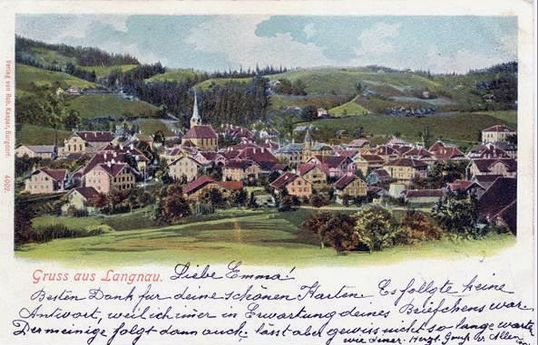 Verlag von Rob. Kaeser, Burgdorf.
4002.
Gruss aus Langnau.
Liebe Emma!
Besten Dank für deine schönen Karten. Es folgte keine
Antwort, weil ich imer in Erwartung deines Briefchens war.
Dermeinige folgt dann auch, lässt aber gewiss nicht so lange warten
wie deiner. Herzl. von Allen